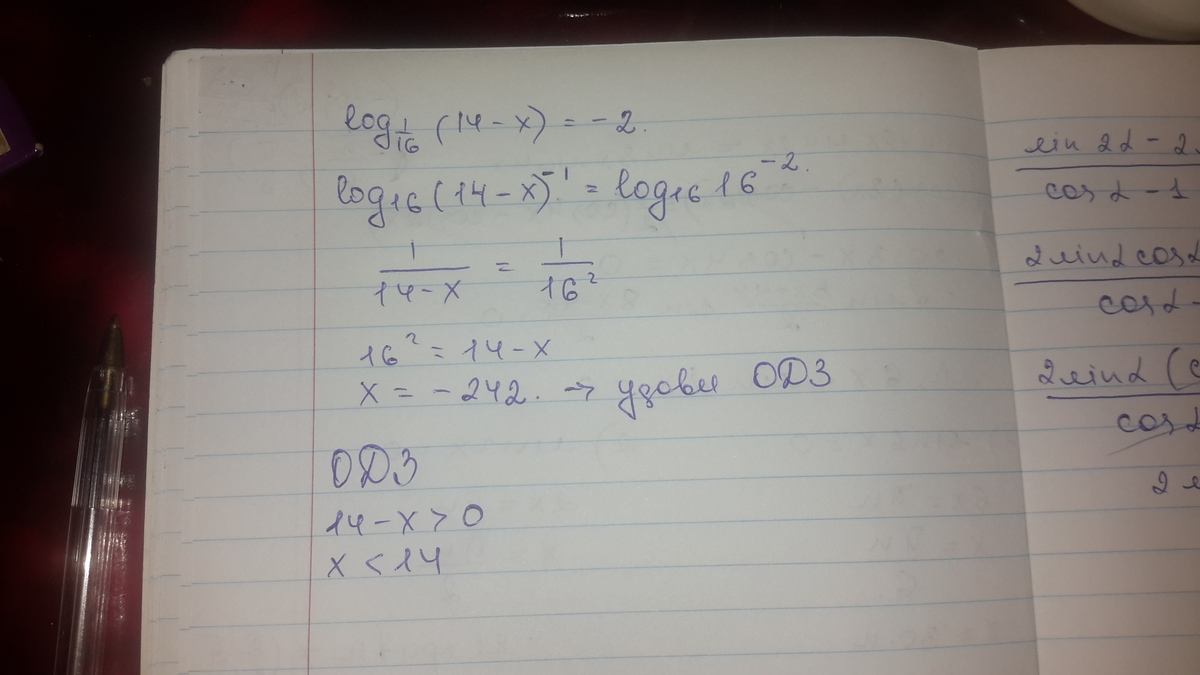 log_{1/16} (14 - x) = - 2.
log_{16} (14 - x)^{-1} = log_{16} 16^{-2}.
\frac{1}{14 - x} = \frac{1}{16^2}
16^2 = 14 - x
x = - 242. → удовл ОДЗ
ОДЗ
14 - x > 0
x < 14
sin 2α - 2
cos α - 1
2 sin α cos α
cos α -
2 sin α (
cos α
2